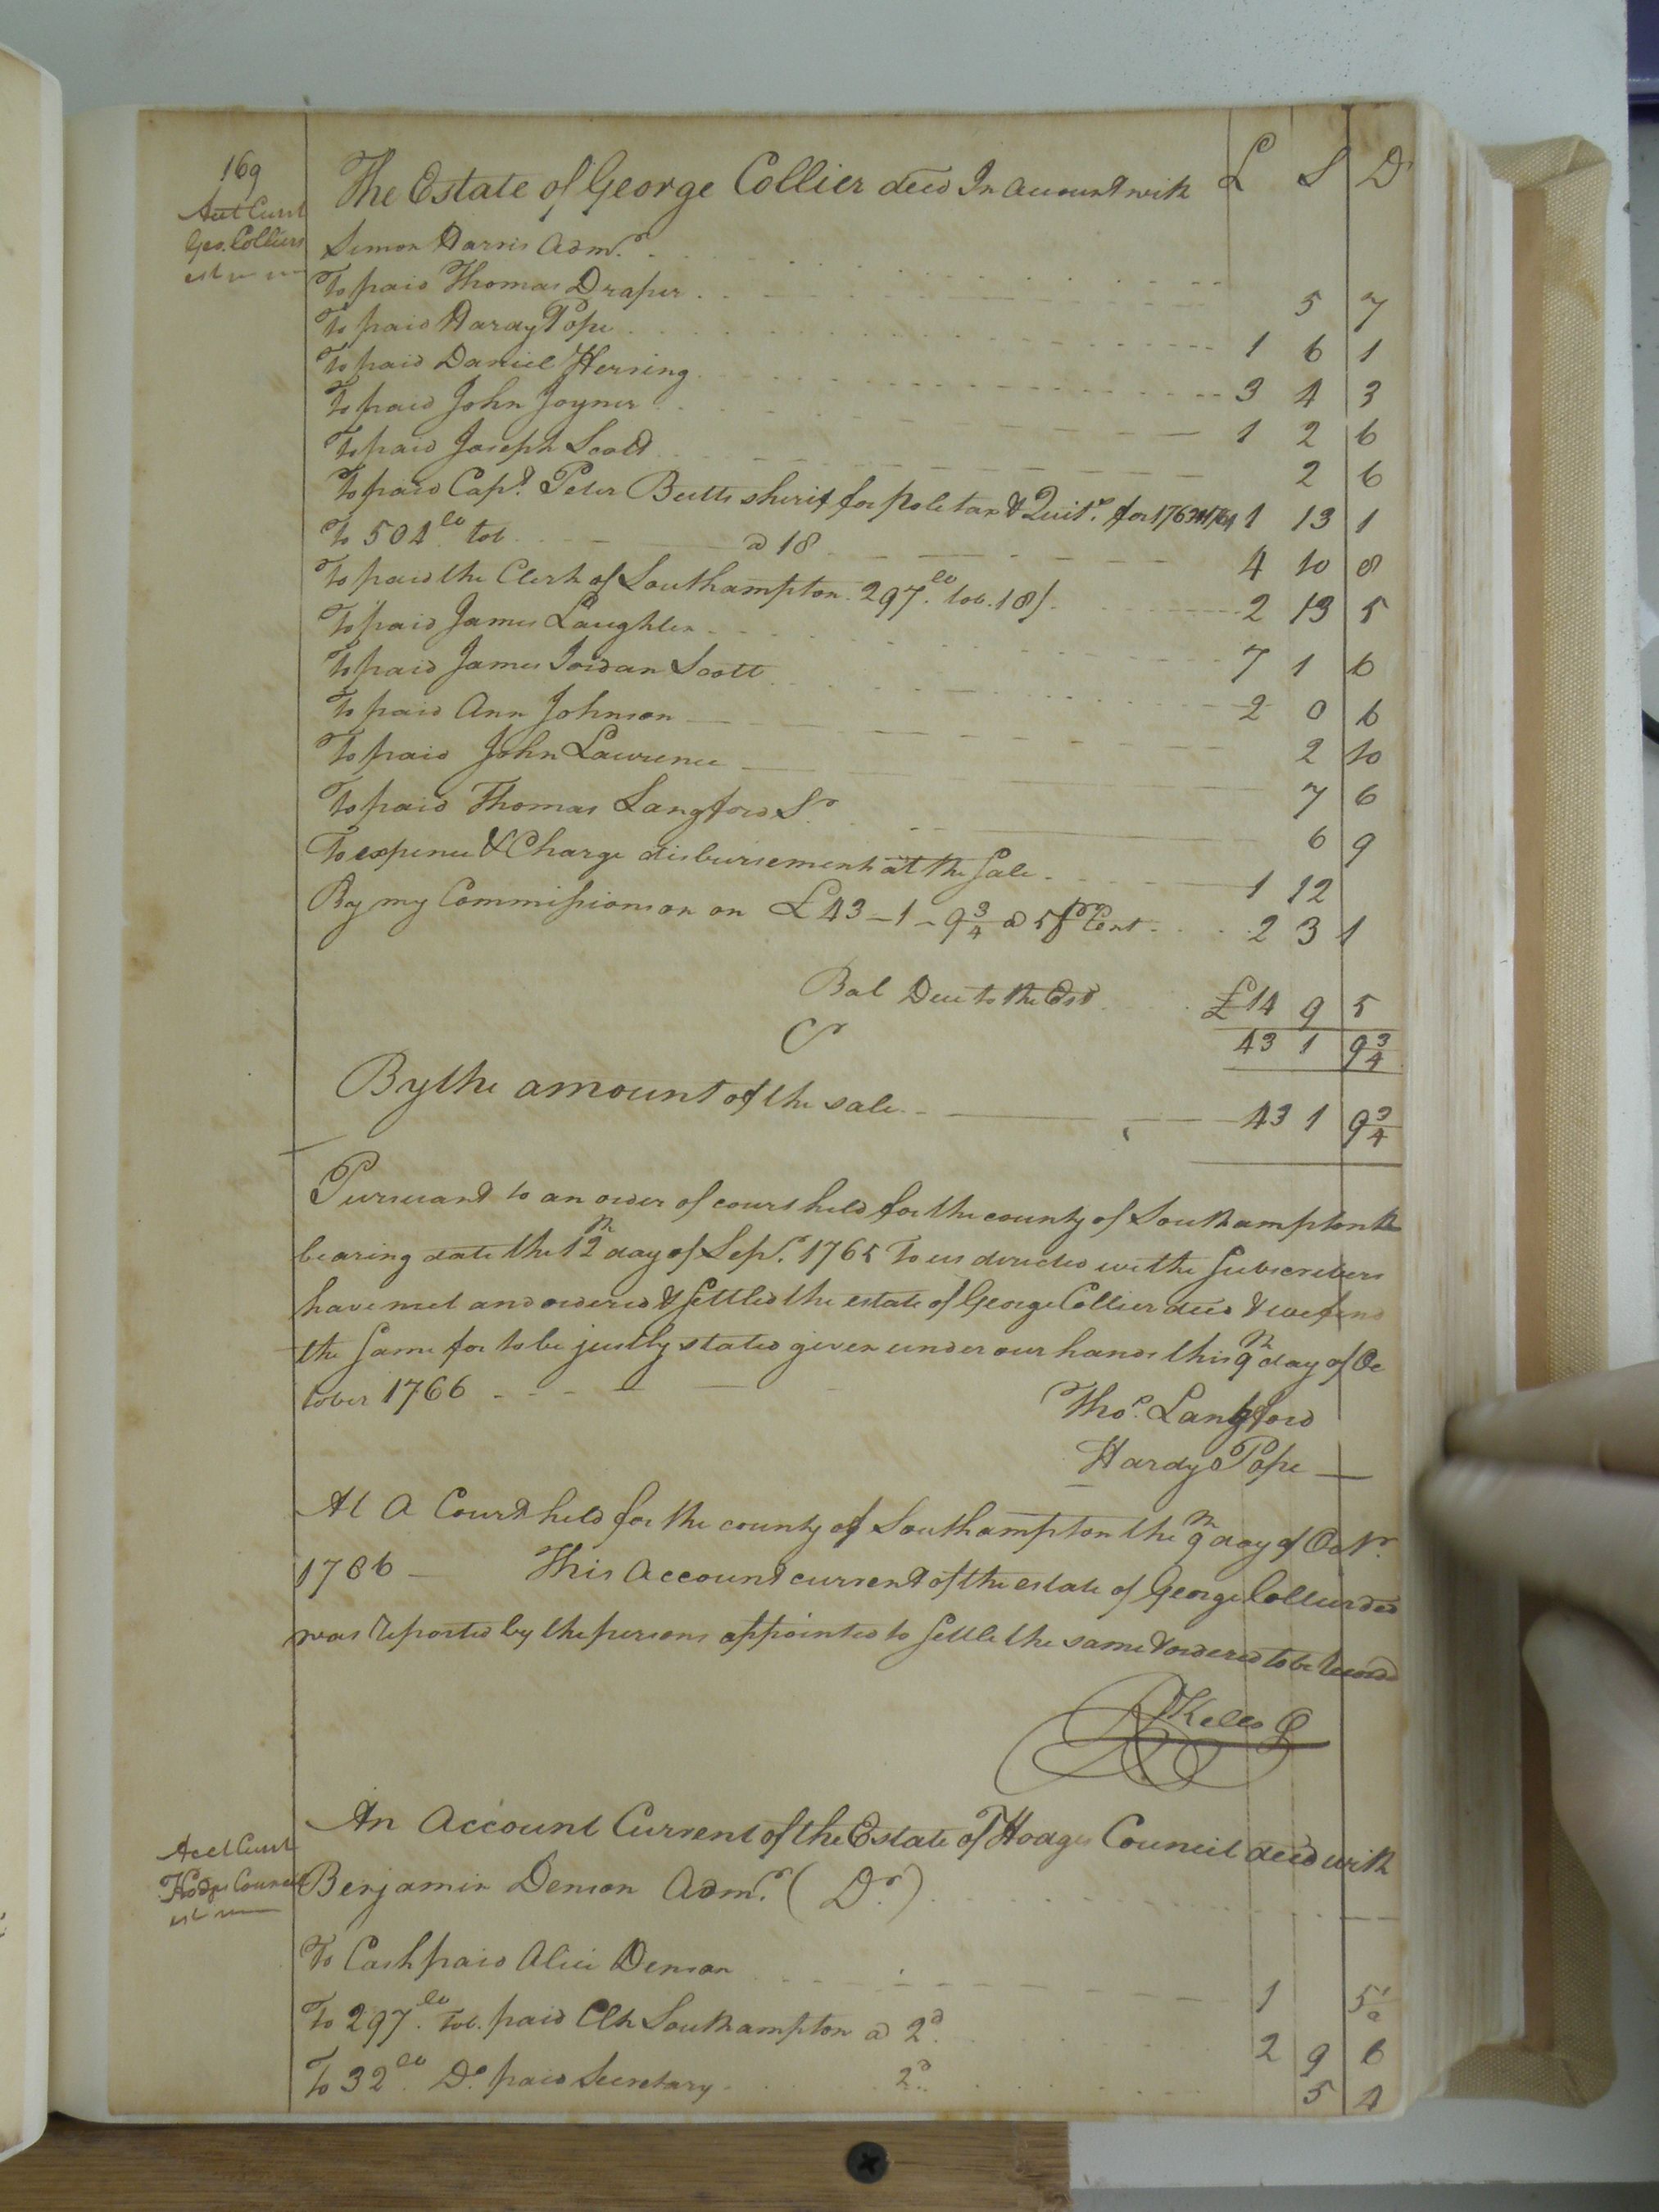 169
Acct Curt
Geo. Colliers
est
The Estate of George Collier decd In account with £ S D
Simon Harris Admr.
To paid Thomas Draper 5 7
To paid Hardy Pope 1 6 1
To paid Daniel Herring 3 4 3
To paid John Joyner 1 2 6
To paid Joseph Scott 2 6
To paid Capt. Peter Butts sherif for pole tax & Quits. for 1763 1764 1 13 1
To 504 lb tob @ 18 4 10 8
To paid the Clerk of Southampton 297 lb. tob. 18/. 2 13 5
To paid James Laughter 7 1 6
To paid James Jordan Scott 2 0 6
To paid Ann Johnson 2 10
To paid John Lawrence 7 6
To paid Thomas Langford Sr. 6 9
To expence & Charge disbursements at the Sale 1 12
By my Commissions on on £43-1-9 3/4 @ 5 pr Cent 2 3 1
Bal Due to the Est £14 9 5
Cr 43 1 9 3/4
By the amount of the sale 43 1 9 3/4
Pursuant to an order of court held for the county of Southampton the
bearing date the 12th day of Sept. 1765 To us directed we the Subscribers
have met and ordered & Settled the estate of George Collier decd & we find
the Same for to be justly stated given under our hands this 9th day of Oc
tober 1766
Thos. Langford
Hardy Pope
At A Court held for the county of Southampton the 9th day of Octr.
1766 This Account current of the estate of George Collier decd
was reported by the persons appointed to Settle the same & ordered to be Recorded
R Kello
Acct Curt
Hodges Council
est
An Account Current of the Estate of Hodges Council decd with
Benjamin Denson Admr. (Dr.)
To Cash paid Alice Denson 1 5
To 297 lb. Tob. paid Clk Southampton @ 2d. 2 9 6
To 32 lb. Do. paid Secretary 2d. 5 4